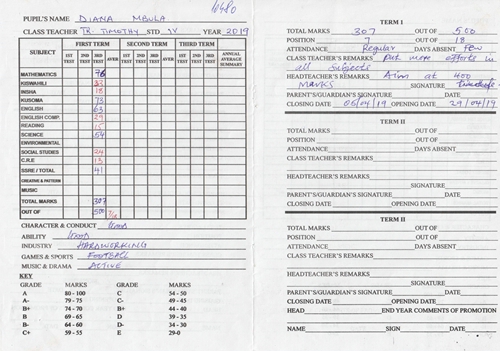 PUPIL'S NAME DIANA MBULA
CLASS TEACHER TR. TIMOTHY STD IV YEAR 2019
SUBJECT FIRST TERM SECOND TERM THIRD TERM ANNUAL AVERAGE SUMMARY
1ST TEST 2ND TEST 3RD TEST AVER 1ST TEST 2ND TEST 3RD TEST AVER 1ST TEST 2ND TEST 3RD TEST
MATHEMATICS 76
KISWAHILI 33
INSHA 18
KUSOMA 73
ENGLISH 63
ENGLISH COMP. 29
READING 15
SCIENCE 54
ENVIRONMENTAL
SOCIAL STUDIES 24
C.R.E 13
SSRE / TOTAL 41
CREATIVE & PATTERN
MUSIC
TOTAL MARKS 307
OUT OF 500
CHARACTER & CONDUCT Good
ABILITY Good
INDUSTRY HARDWORKING
GAMES & SPORTS FOOTBALL
MUSIC & DRAMA ACTIVE
KEY
GRADE MARKS GRADE MARKS
A 80 - 100 C 54 - 50
A- 79 - 75 C- 49 - 45
B+ 74 - 70 B+ 44 - 40
B 69 - 65 D 39 - 35
B- 64 - 60 D- 34 - 30
C+ 59 - 55 E 29-0
TERM I
TOTAL MARKS 307 OUT OF 500
POSITION 7 OUT OF 18
ATTENDANCE Regular DAYS ABSENT FEW
CLASS TEACHER'S REMARKS Put more efforts in
all subjects
HEADTEACHER'S REMARKS Aim at 400
MARKS SIGNATURE
PARENT'S/GUARDIAN'S SIGNATURE DATE
CLOSING DATE 05/04/19 OPENING DATE 29/04/19
TERM II
TOTAL MARKS OUT OF
POSITION OUT OF
ATTENDANCE DAYS ABSENT
CLASS TEACHER'S REMARKS
HEADTEACHER'S REMARKS
SIGNATURE
PARENT'S/GUARDIAN'S SIGNATURE DATE
TERM II
TOTAL MARKS OUT OF
POSITION OUT OF
ATTENDANCE DAYS ABSENT
CLASS TEACHER'S REMARKS
HEADTEACHER'S REMARKS
SIGNATURE
PARENT'S/GUARDIAN'S SIGNATURE DATE
CLOSING DATE OPENING DATE
HEAD END YEAR COMMENTS OF PROMOTION
NAME SIGN DATE